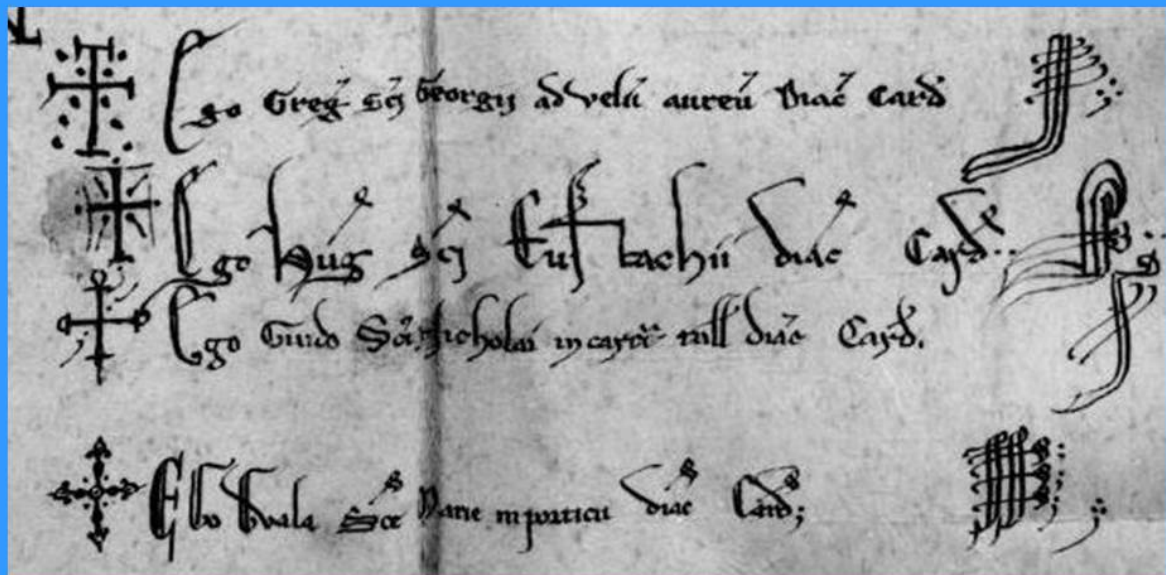 Ego Greg̃ Scī Georgij ad velū aureū diac̄ Card
Ego hug̃ scī Eustachii diac̄ Card̄
Ego Guido Scī Nicholai in carc̄ tull diac̄ Card.
Ego Guala Scē Marie in porticu diac̄ Card;